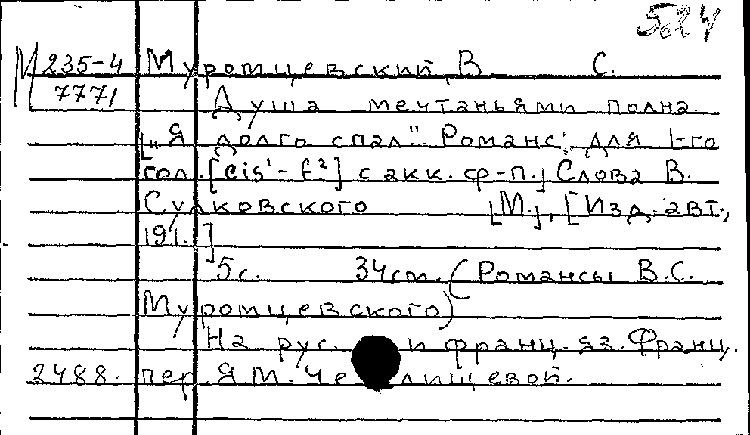 524
М 235-4 Муромцевский, В. С.
7771 Душа мечтаньями полна
[„Я долго спал". Романс: Для 1-го
гол. [cis¹-f²] с акк. ф-п.] Слова В.
Сулковского [М.], [Изд. авт.,
191. ]
5с. 34см. (Романсы В.С.
Муромцевского)
На рус. и франц. яз. Франц.
2488. пер. Я.М.